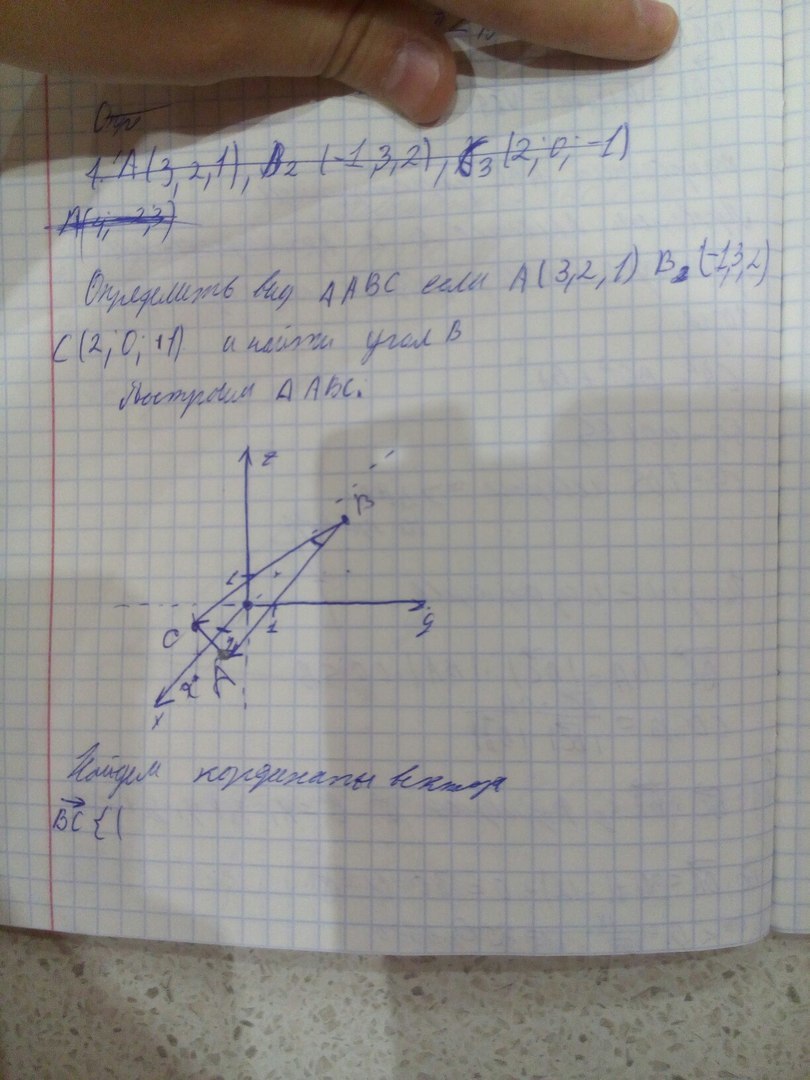 Опр
1. A(3,2,1), B2 (-1,3,2), C3(2; 0; -1)
A(4; -2,3)
Определить вид ΔABC если A(3,2,1) B2(-1,3,2)
C(2; 0; +1) и найти угол B
Построим ΔABC.
z
B
1
C
1
y
2
A
x
Найдем координаты вектора
BC {(